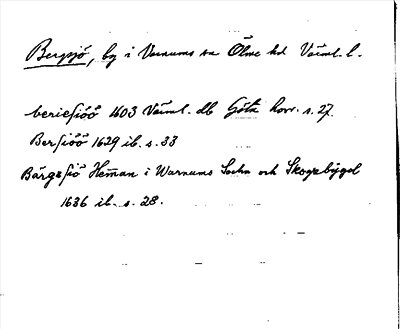 Bergsjö, by i Varnums sn Ölme hd Värml. l.
beriesiöö 1403 Värml. db Göta hovr. s. 27.
Bersiöö 1629 ib. s. 33
Bärgesiö Heman i Warnums Sochn och Skogzbygel
1636 ib. s. 28.